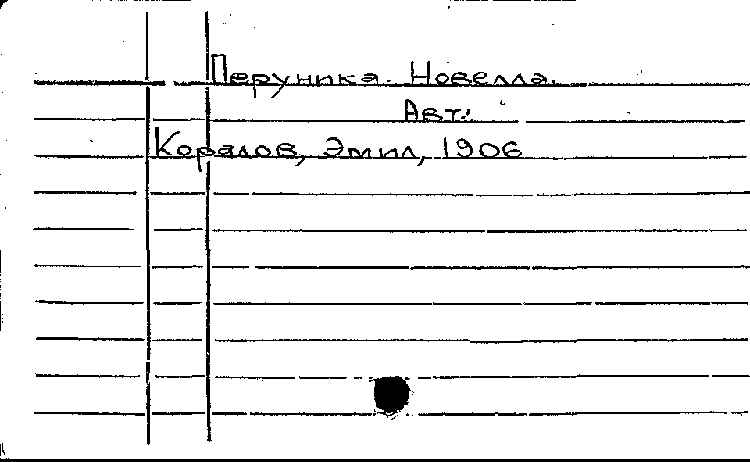 Перуника. Новелла.
Авт.:
Коралов, Эмил, 1906